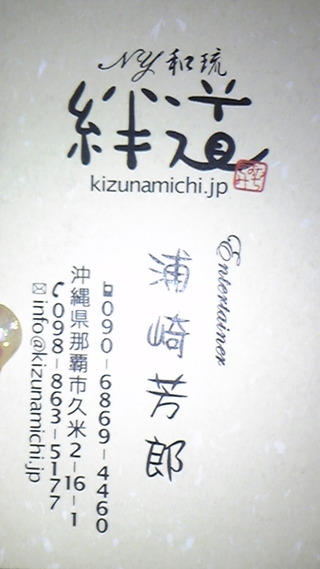 NY和琉
絆道
kizunamichi.jp
Entertainer
浦崎芳郎
090-6869-4460
沖縄県那覇市久米2-16-1
098-863-5177
info@kizunamichi.jp